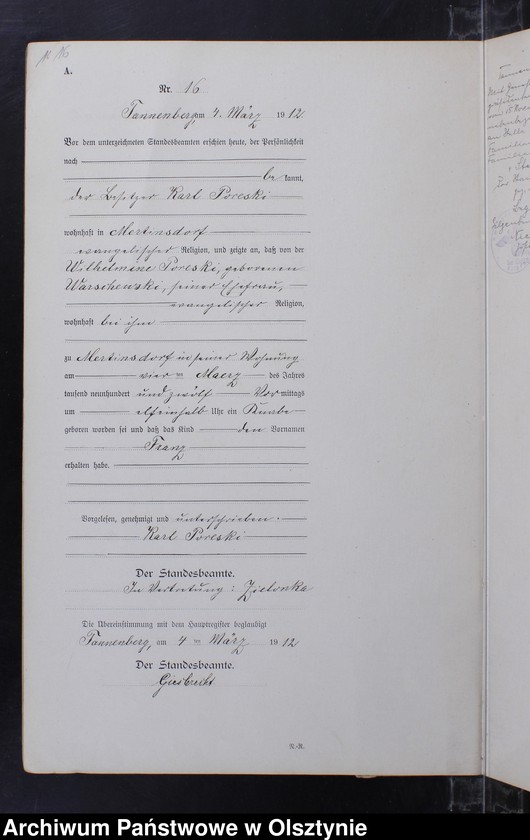 № 16
A.
Nr. 16
Tannenberg, am 4. März 1912.
Vor dem unterzeichneten Standesbeamten erschien heute, der Persönlichkeit
nach
be kannt,
der Besitzer Karl Poreski
wohnhaft in Mertinsdorf
evangelischer Religion, und zeigte an, daß von der
Wilhelmine Poreski, geborenen
Warschewski, seiner Ehefrau,
evangelischer Religion,
wohnhaft bei ihm
zu Mertinsdorf in seiner Wohnung
am vier ten Maerz des Jahres
tausend neunhundert und zwölf Vor mittags
um elfeinhalb Uhr ein Knabe
geboren worden sei und daß das Kind den Vornamen
Franz
erhalten habe.
Vorgelesen, genehmigt und unterschrieben.
Karl Poreski
Der Standesbeamte.
In Vertretung: Zielonka
Die Übereinstimmung mit dem Hauptregister beglaubigt
Tannenberg, am 4 ten März 1912
Der Standesbeamte.
Giesbrecht
R.-R.
Archiwum Państwowe w Olsztynie